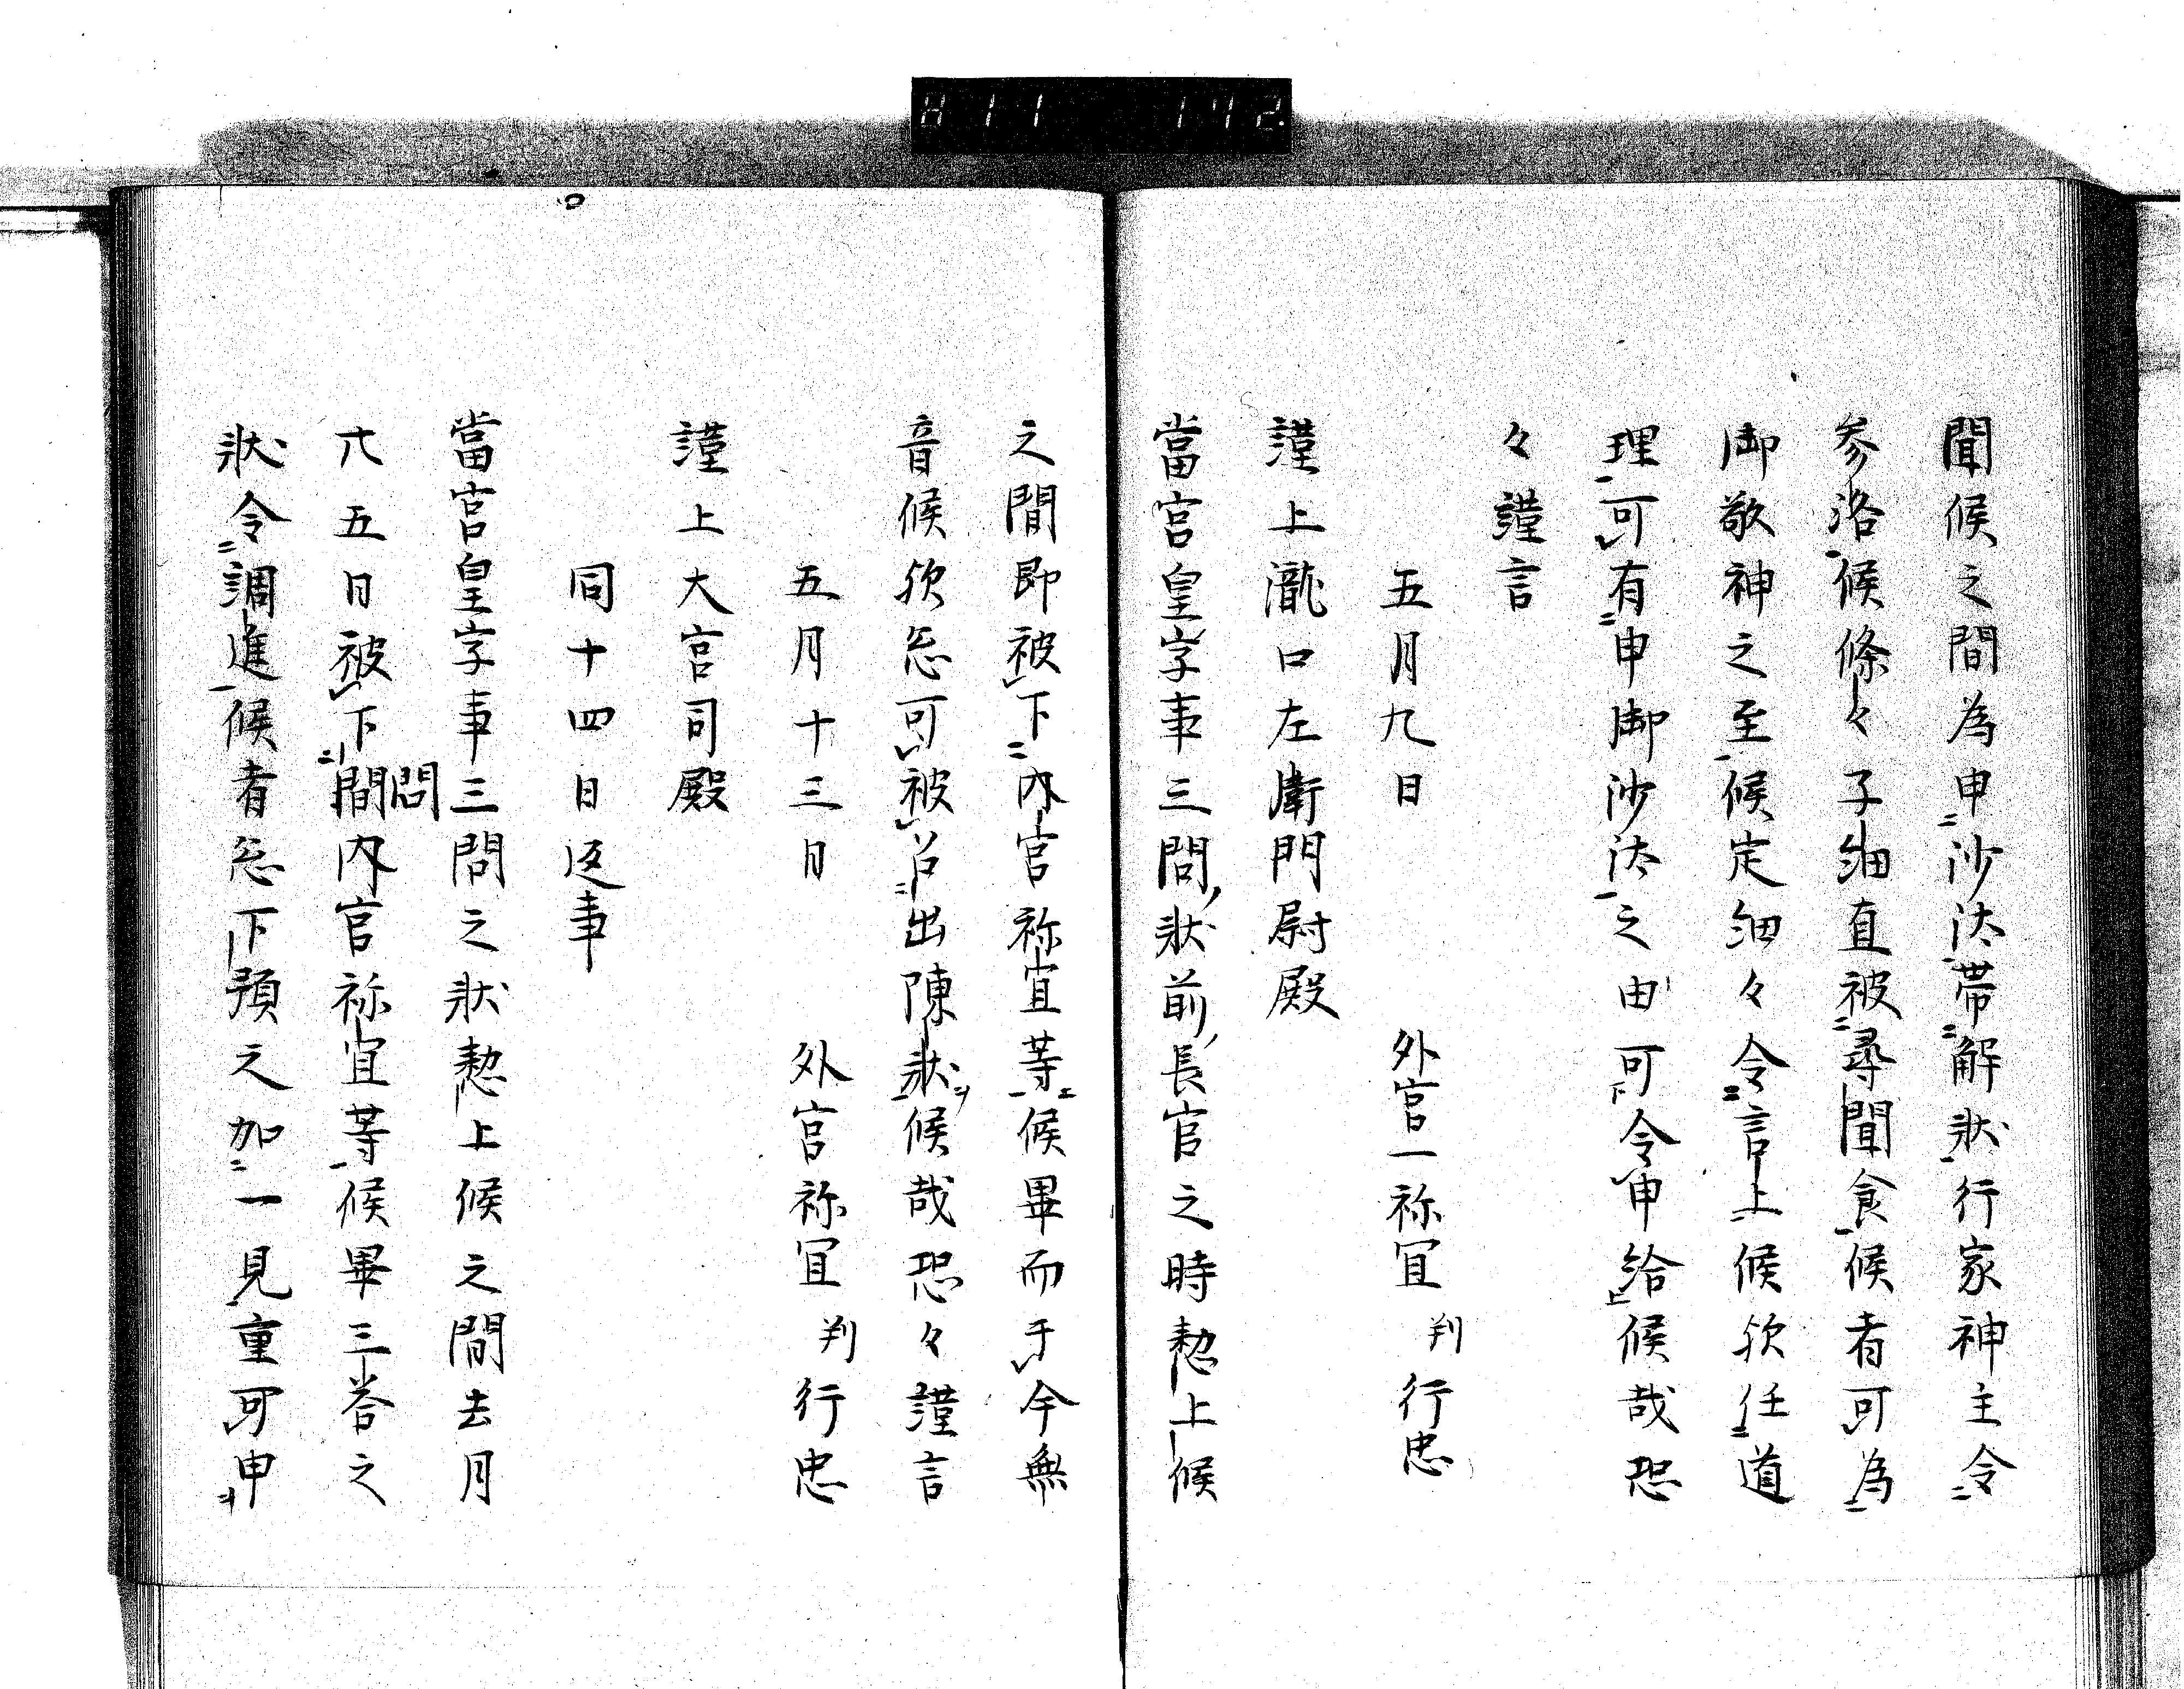 811 142
聞候之間為申沙汰帯解状行家神主令
参洛候條々子細直被尋聞食候者可為
御敬神之至候定細々令言上候欤任道
理可有申御沙汰之由可令申給候哉恐
々謹言
五月九日 外宮一祢宜 判 行忠
謹上瀧口左衛門尉殿
當宮皇字事三問状前長官之時愸上候
之間即被下内宮祢宜等候畢而于今無
音候欤忩可被召出陳状候哉恐々謹言
五月十三日 外宮祢宜 判 行忠
謹上大宮司殿
同十四日返事
當宮皇字事三問之状愸上候之間去月
廿五日被下間内宮祢宜等候畢三荅之
問
状令調進候者忩下預之加一見重可申